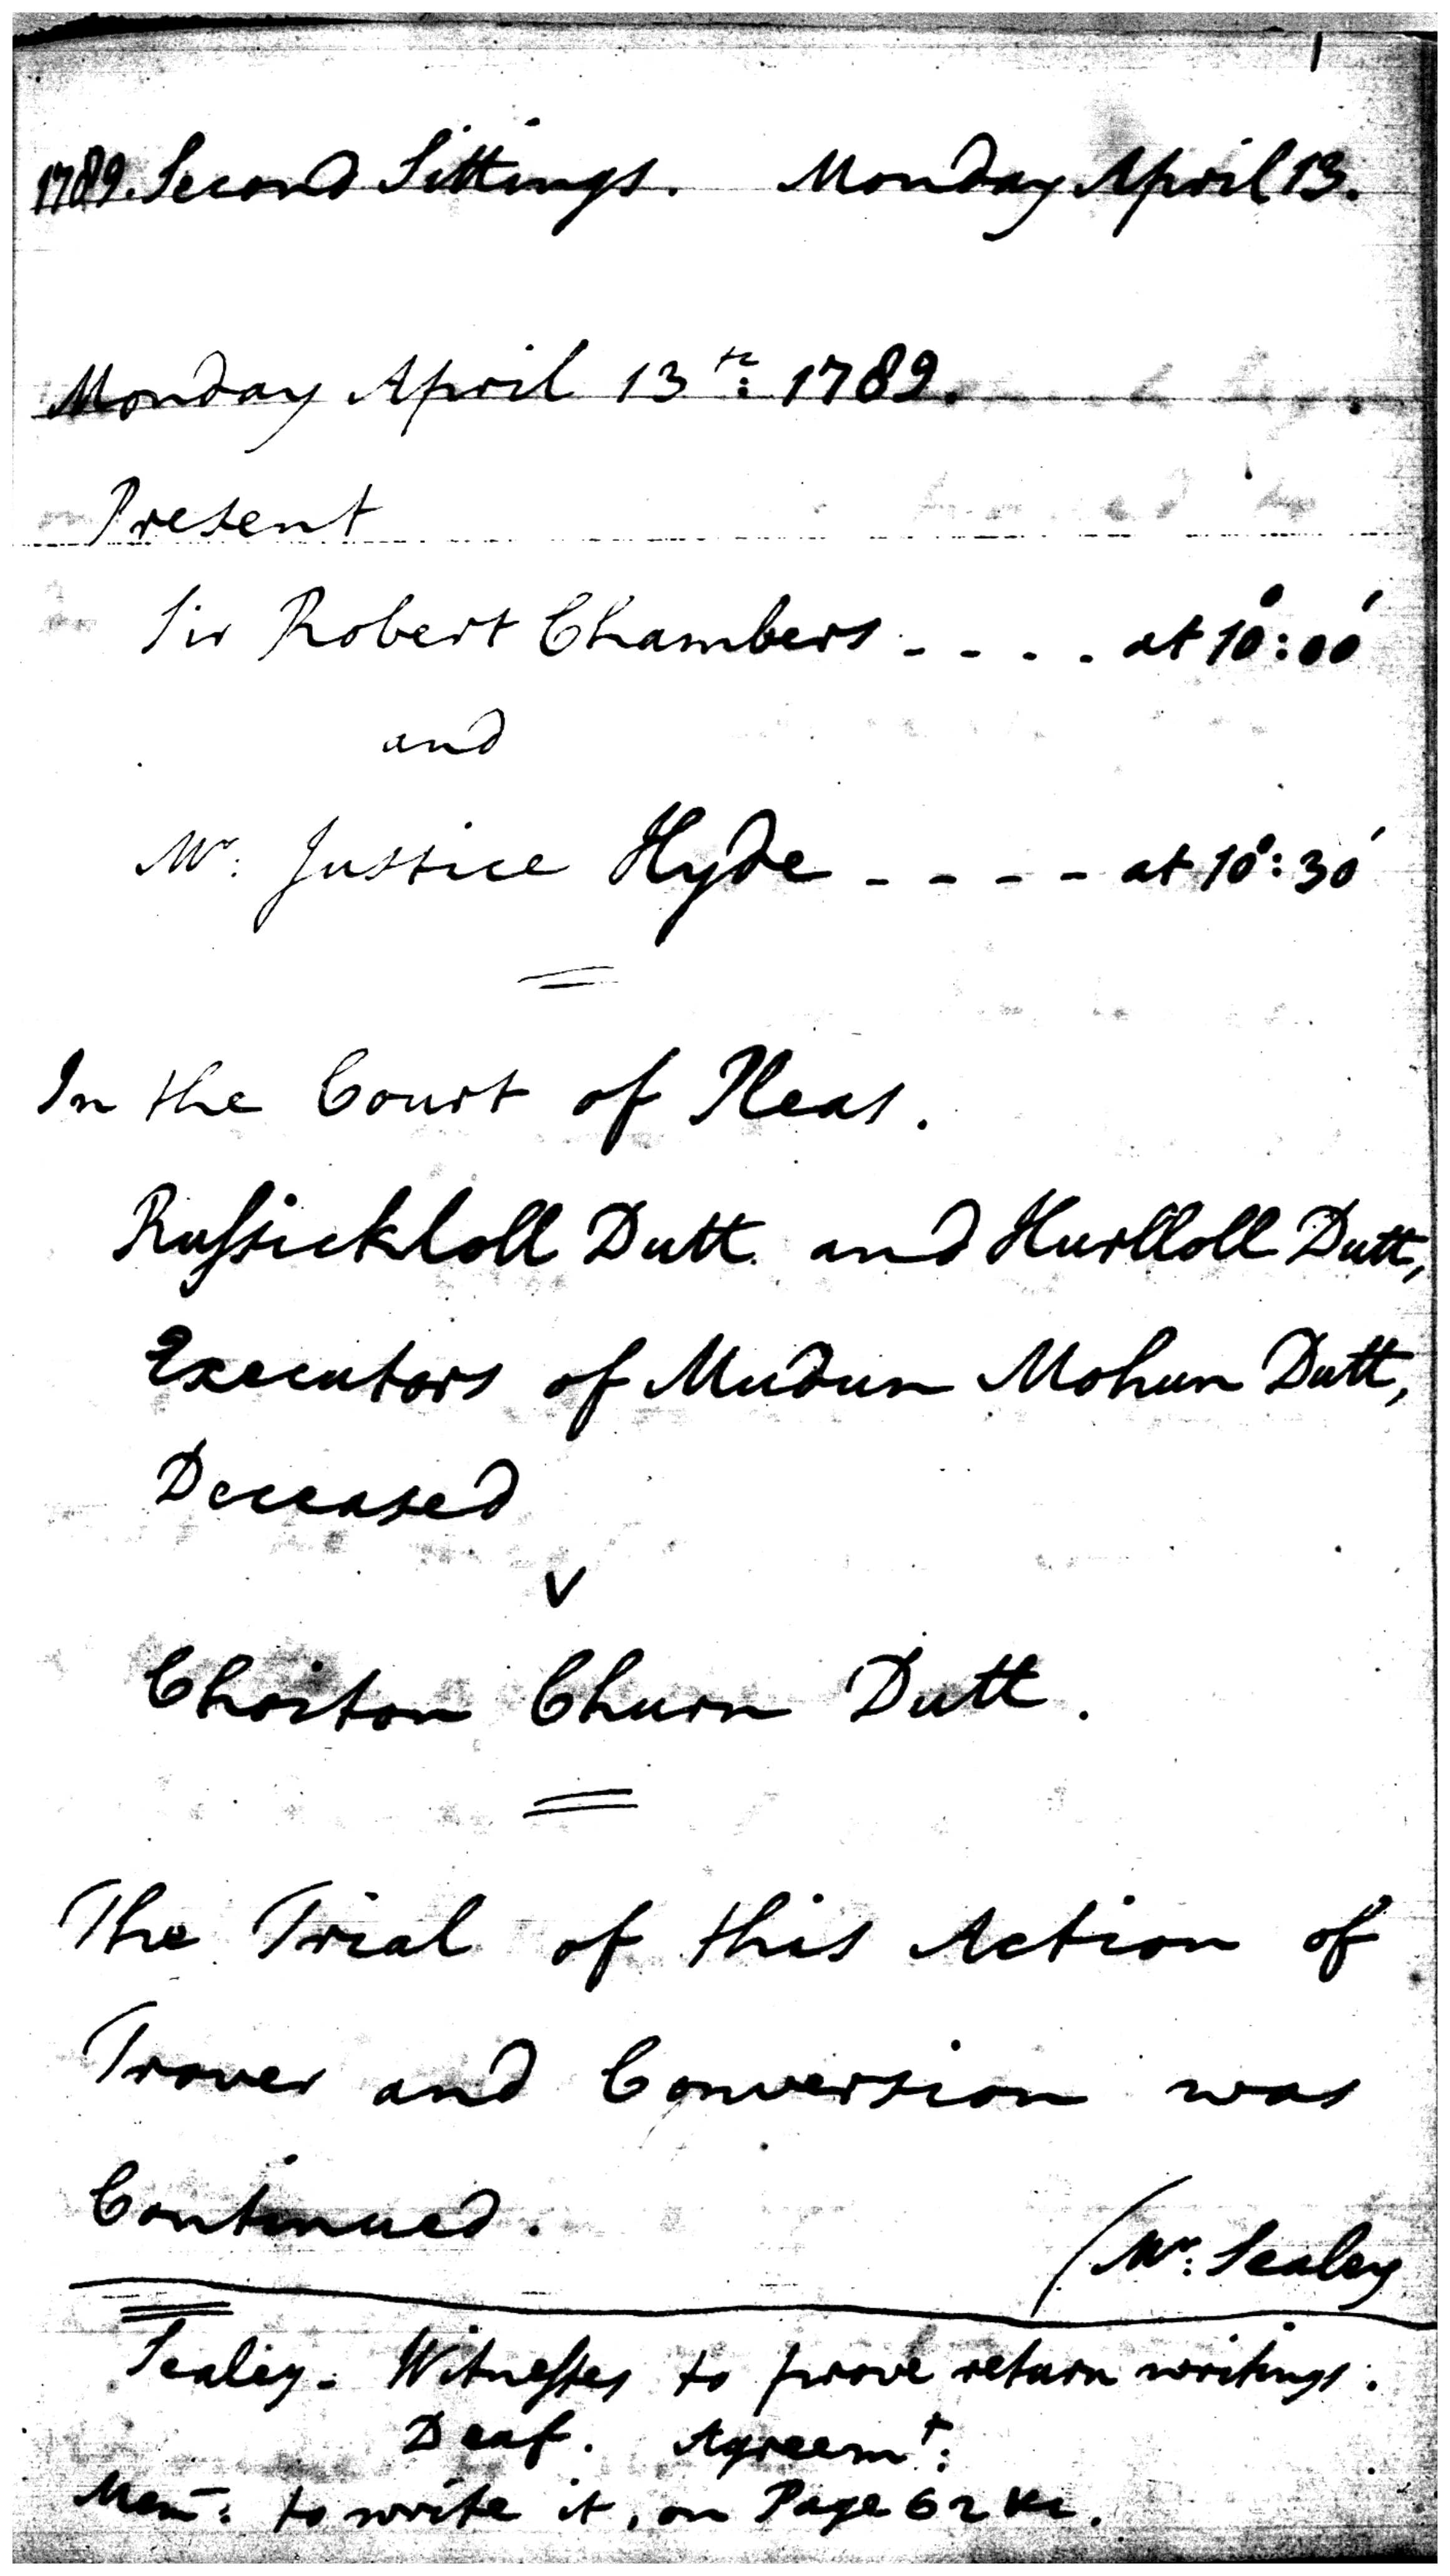 1789. Second Sittings. Monday April 13.
Monday April 13th: 1789.
Present
Sir Robert Chambers - - - - at 10°:00'
and
Mr. Justice Hyde - - - - at 10°:30'
In the Court of Pleas.
Russickloll Dutt. and Hurlloll Dutt,
Executors of Mudun Mohun Dutt,
Deceased
v
Choiton Churn Dutt.
The Trial of this Action of
Trover and Conversion was
Continued.
(Mr. Sealey
Sealey. Witnesses to prove return writings.
Deaf. Agreemt:
Mem: to write it, on Page 62 &c.